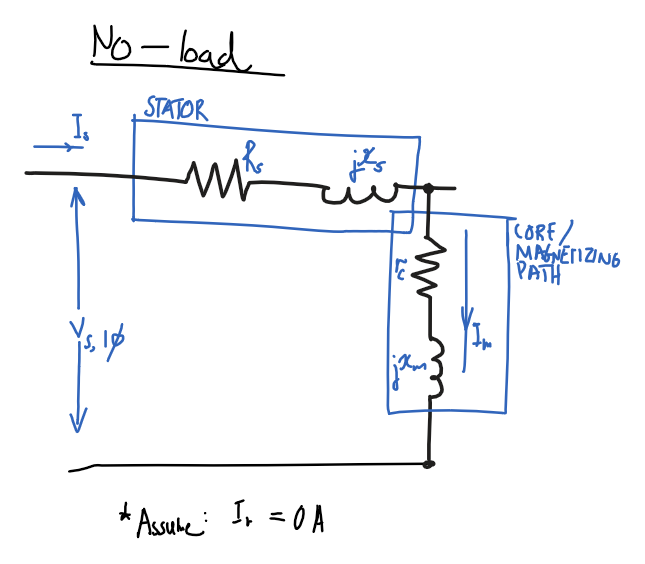 No-load
STATOR
Is
Rs
jxs
CORE/
MAGNETIZING
PATH
rc
Im
jxm
Vs, 1φ
*Assume: Ir = 0 A